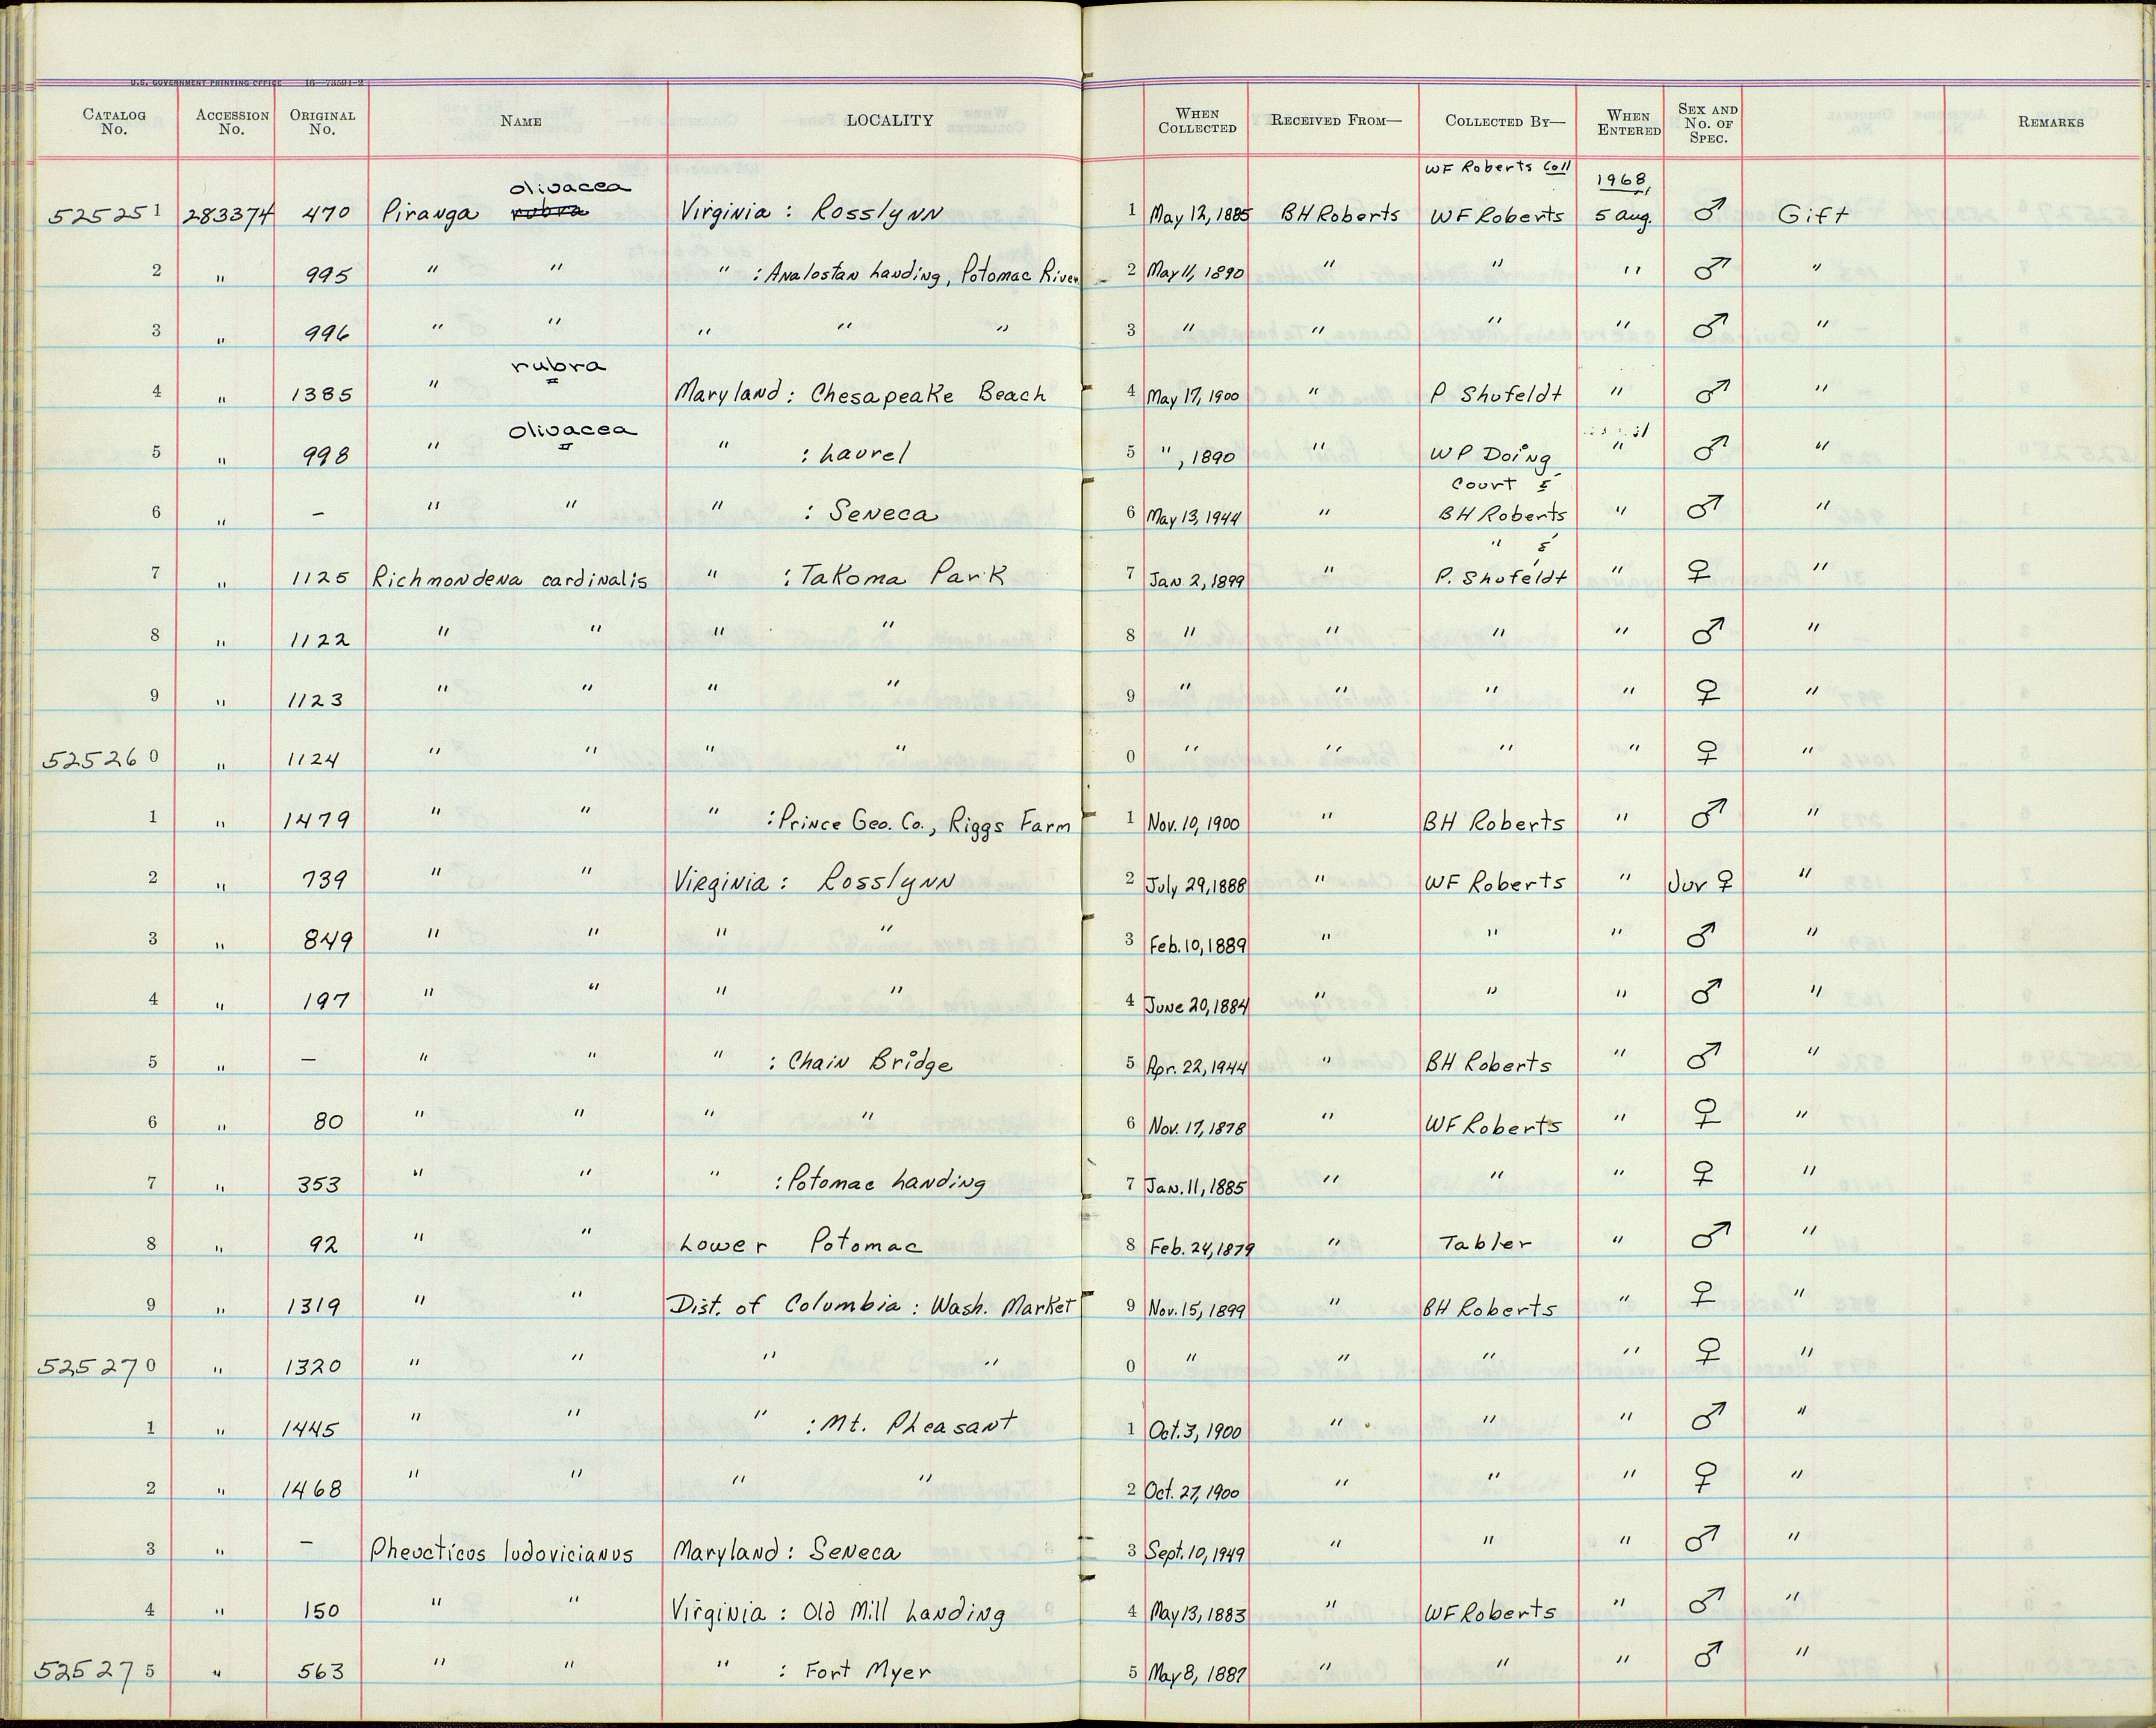 U.S. GOVERNMENT PRINTING OFFICE 16—73591-2
CATALOG No. ACCESSION No. ORIGINAL No. NAME LOCALITY WHEN COLLECTED RECEIVED FROM— COLLECTED BY— WHEN ENTERED SEX AND No. OF SPEC. REMARKS
olivacea WF Roberts Coll 1968,
525251 283374 470 Piranga rubra Virginia : Rosslynn 1 May 12, 1885 BH Roberts WF Roberts 5 aug. ♂ Gift
2 " 995 " " " : Analostan Landing, Potomac River 2 May 11, 1890 " " " ♂ "
3 " 996 " " " " " 3 " " " " ♂ "
rubra
4 " 1385 " = Maryland : Chesapeake Beach 4 May 17, 1900 " P Shufeldt " ♂ "
olivacea
5 " 998 " = " : Laurel 5 ", 1890 " WP Doing " ♂ "
Court &
6 " — " " " : Seneca 6 May 13, 1944 " BH Roberts " ♂ "
" &
7 " 1125 Richmondena cardinalis " : Takoma Park 7 Jan 2, 1899 " P. Shufeldt " ♀ "
8 " 1122 " " " " 8 " " " " ♂ "
9 " 1123 " " " " 9 " " " " ♀ "
525260 " 1124 " " " " 0 " " " " ♀ "
1 " 1479 " " " : Prince Geo. Co., Riggs Farm 1 Nov. 10, 1900 " BH Roberts " ♂ "
2 " 739 " " Virginia : Rosslynn 2 July 29, 1888 " WF Roberts " Juv ♀ "
3 " 849 " " " " 3 Feb. 10, 1889 " " " ♂ "
4 " 197 " " " " 4 June 20, 1884 " " " ♂ "
5 " — " " " : Chain Bridge 5 Apr. 22, 1944 " BH Roberts " ♂ "
6 " 80 " " " " 6 Nov. 17, 1878 " WF Roberts " ♀ "
7 " 353 " " " : Potomac Landing 7 Jan. 11, 1885 " " " ♀ "
8 " 92 " " Lower Potomac 8 Feb. 24, 1879 " Tabler " ♂ "
9 " 1319 " " Dist. of Columbia : Wash. Market 9 Nov. 15, 1899 " BH Roberts " ♀ "
525270 " 1320 " " " " 0 " " " " ♀ "
1 " 1445 " " " : Mt. Pheasant 1 Oct. 3, 1900 " " " ♂ "
2 " 1468 " " " " 2 Oct. 27, 1900 " " " ♀ "
3 " — Pheucticus ludovicianus Maryland : Seneca 3 Sept. 10, 1949 " " " ♂ "
4 " 150 " " Virginia : Old Mill Landing 4 May 13, 1883 " WF Roberts " ♂ "
525275 " 563 " " " : Fort Myer 5 May 8, 1887 " " " ♂ "